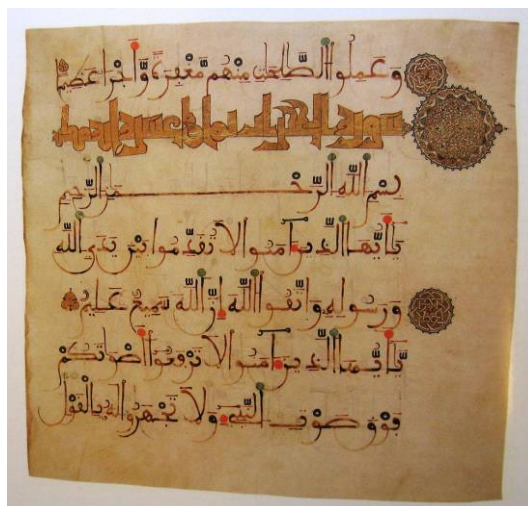 وَعَمِلُوا الصَّٰلِحَٰتِ مِنْهُم مَّغْفِرَةً وَأَجْرًا عَظِيمًا
سورة الحجرات
بِسْمِ اللَّهِ الرَّحْمَٰنِ الرَّحِيمِ
يَٰأَيُّهَا الَّذِينَ ءَامَنُوا لَا تُقَدِّمُوا بَيْنَ يَدَيِ اللَّهِ
وَرَسُولِهِ وَاتَّقُوا اللَّهَ إِنَّ اللَّهَ سَمِيعٌ عَلِيمٌ
يَٰأَيُّهَا الَّذِينَ ءَامَنُوا لَا تَرْفَعُوا أَصْوَٰتَكُمْ
فَوْقَ صَوْتِ النَّبِيءِ وَلَا تَجْهَرُوا لَهُ بِالْقَوْلِ